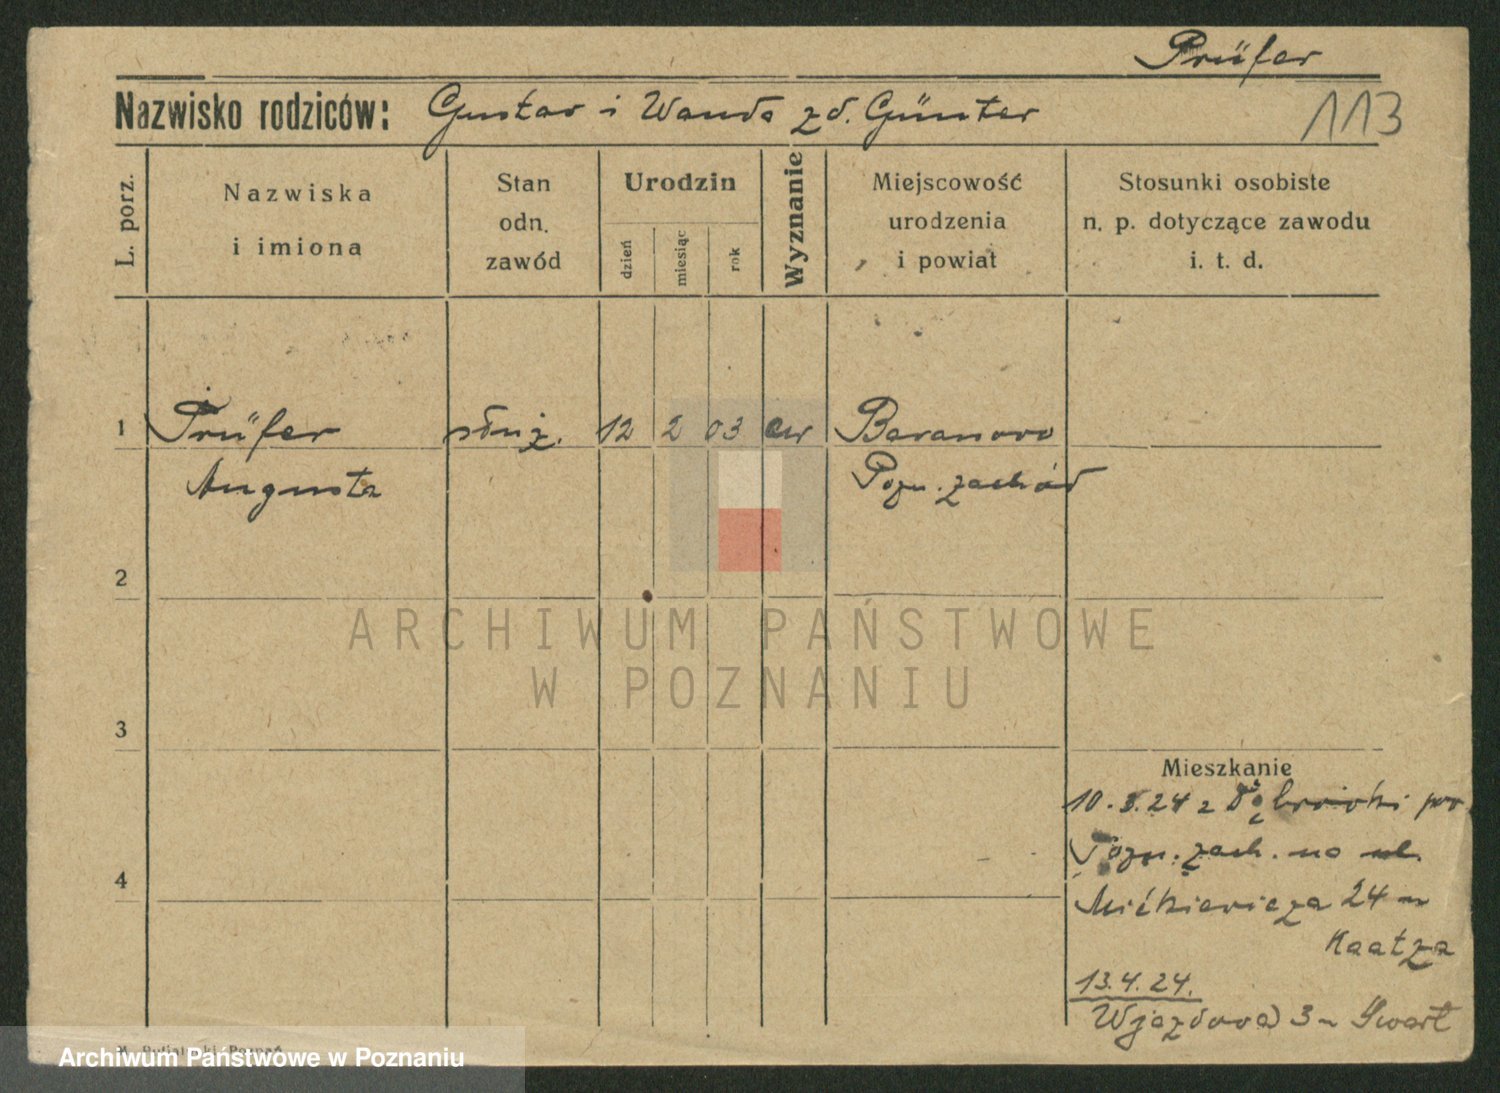 Prüfer
Nazwisko rodziców: Gustav i Wanda zd. Günter
113
L. porz.
Nazwiska
i imiona
Stan
odn.
zawód
Urodzin
dzień
miesiąc
rok
Wyznanie
Miejscowość
urodzenia
i powiat
Stosunki osobiste
n. p. dotyczące zawodu
i. t. d.
1 Prüfer służ. 12 2 03 ew Baranowo
Augusta Pozn. zachód
2
3
4
Mieszkanie
10.3.24 z
Pozn. zach. na ul.
Mickiewicza 24
Kaatza
13.4.24.
Wjazdowa 3
Poznań
ARCHIWUM PAŃSTWOWE
W POZNANIU
Archiwum Państwowe w Poznaniu